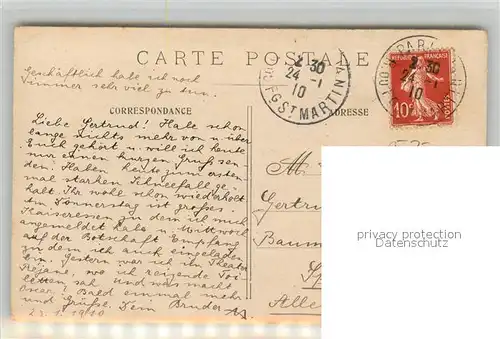 CARTE POSTALE
Geschäftlich habe ich noch
immer sehr viel zu tun.
CORRESPONDANCE
ADRESSE
2 30
24 -1
10
FG ST MARTIN
PARIS
2 30
10
RÉPUBLIQUE FRANÇAISE
10
POSTES
Liebe Gertrud! Habe schon
lange nichts mehr von
Euch gehört u. will ich heute
nur einen kurzen Gruß sen-
den. Haben heute zum ersten-
mal starken Schneefall ge-
habt. Ihr wohl schon wiederholt
Am Donnerstag ist großes
Kaiseressen zu dem ich mich
angemeldet habe u. Mittwoch
auf der Botschaft Empfang
zu dem ich auch eingeladen
bin. Gestern war ich im Theater
Réjane, wo ich reizende Toi-
letten sah. Und was macht
Oscar? Bald einmal mehr
und Grüße. Dein Bruder
23.1.1910
Gertru
Baum
Alle
privacy protection
Datenschutz